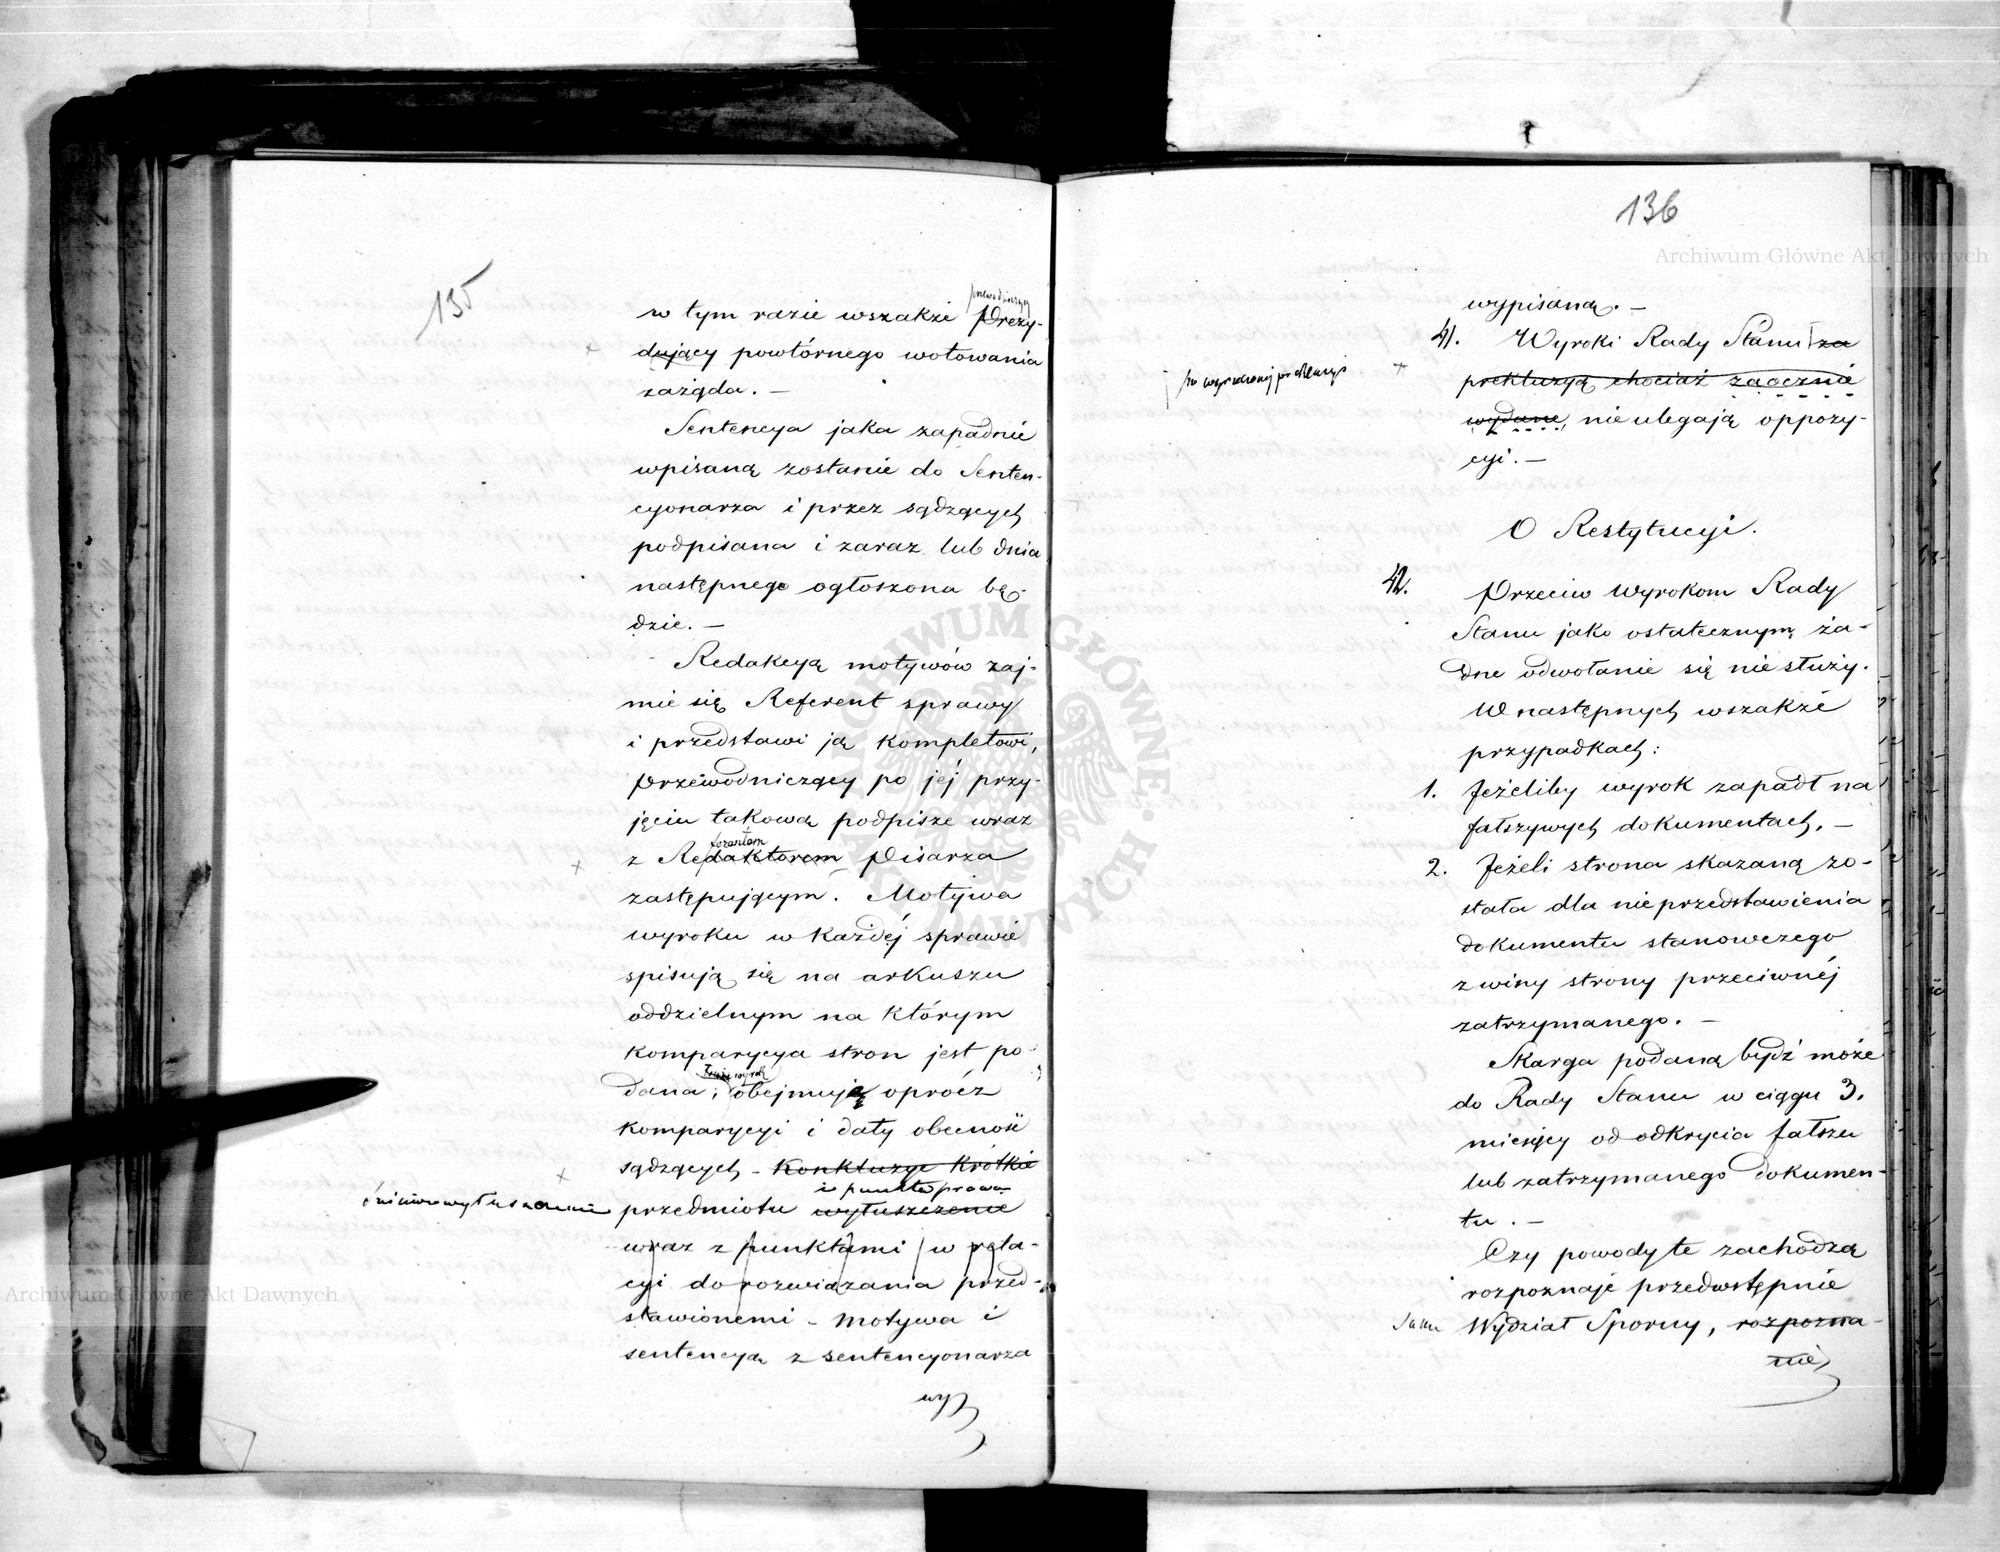 135
w tym razie wszakże Prezy-
przewodniczący
dujący powtórnego wotowania
zażąda. —
Sentencya jaka zapadnie
wpisaną zostanie do Senten-
cyonarza i przez sądzących
podpisana i zaraz lub dnia
następnego ogłoszona bę-
dzie. —
Redakcyą motywów zaj-
mie się Referent sprawy
i przedstawi ją kompletowi,
Przewodniczący po jéj przy-
jęciu takową podpisze wraz
z Redaktorem Pisarza
zastępującym. Motywa
wyroku w każdéj sprawie
spisują się na arkuszu
oddzielnym na którym
komparycya stron jest po-
dana; obejmują oprócz
wyrok
komparycyi i daty obecność
sądzących – Konkluzye krótkie
i punkta prawa
przedmiotu wytuszczenie
wraz z punktami w rela-
cyi do rozwiązania przed-
stawionemi – motywa i
sentencyą z sentencyonarza
wy
136
wypisaną. —
41. Wyroki Rady Stanu za
prekluzyą chociaż zaocznie
po wyrzeczonej prekluzyi
wydane, nie ulegają oppozy-
cyi. —
O Restytucyi.
42. Przeciw Wyrokom Rady
Stanu jako ostatecznym ża-
dne odwołanie się nie służy.
W następnych wszakże
przypadkach:
1. Jeżeliby wyrok zapadł na
fałszywych dokumentach. —
2. Jeżeli strona skazaną zo-
stała dla nieprzedstawienia
dokumentu stanowczego
z winy strony przeciwnéj
zatrzymanego. —
Skarga podaną bydź może
do Rady Stanu w ciągu 3.
miesięcy od odkrycia fałszu
lub zatrzymanego dokumen-
tu. —
Czy powody te zachodzą
rozpoznaje przedwstępnie
Wydział Sporny, rozpozna-
nie
Archiwum Główne Akt Dawnych
Archiwum Główne Akt Dawnych
ARCHIWUM GŁÓWNE AKT DAWNYCH